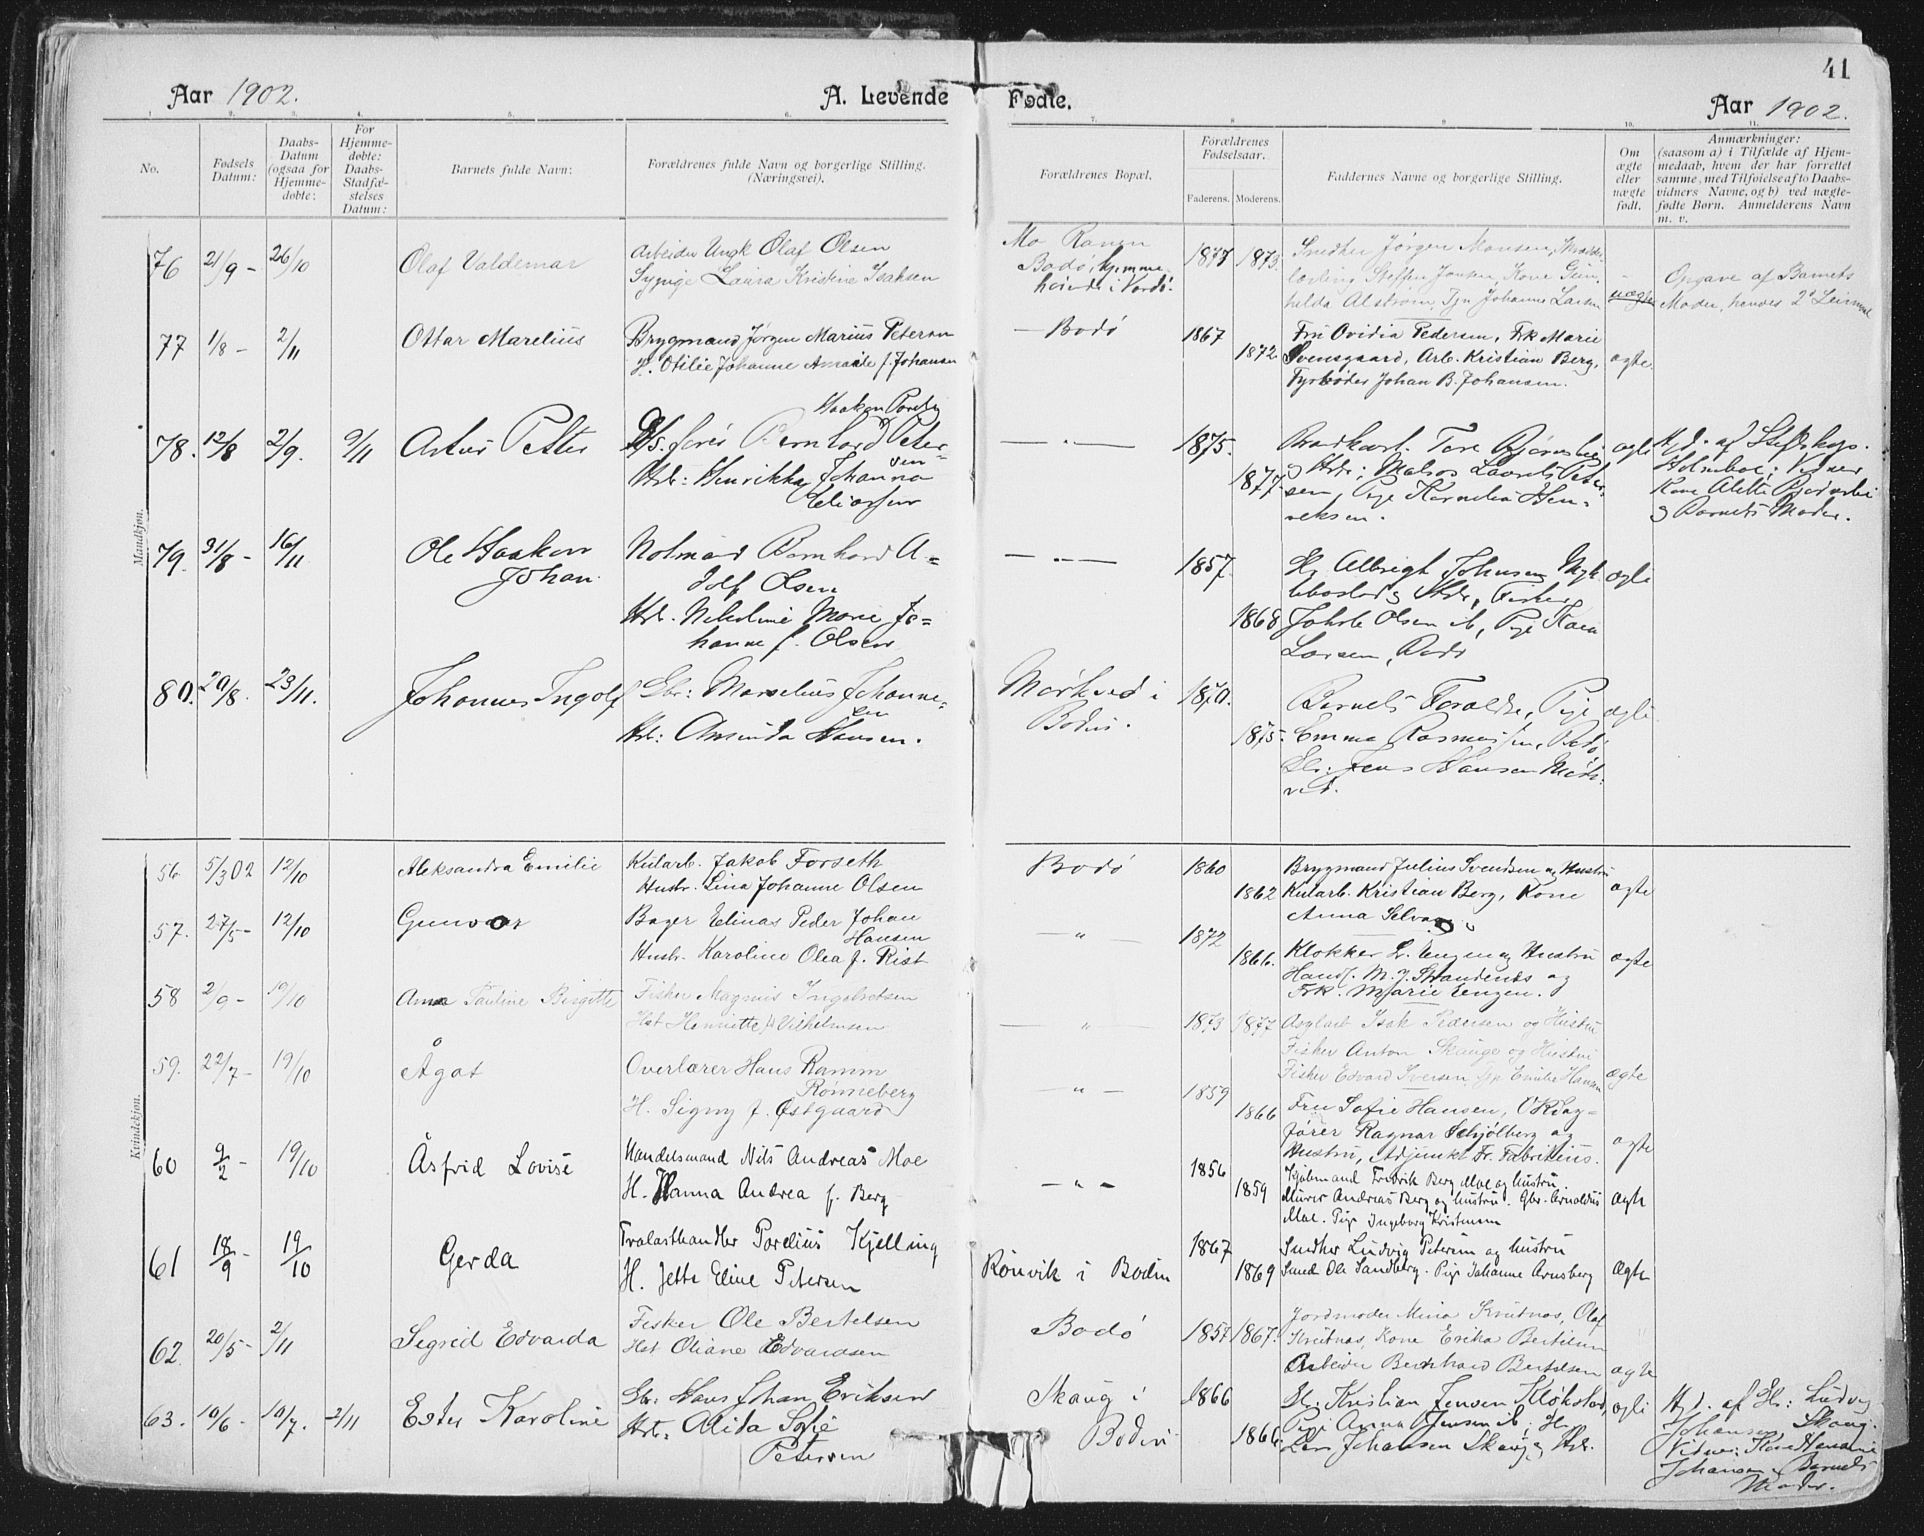 41
Aar 1902.
A. Levende
Fødte.
Aar 1902.
1. 2. 3. 4. 5. 6. 7. 8 9 10. 11.
No.
Fødsels Datum:
Daabs-Datum (ogsaa for Hjemme-døbte:
For Hjemme-døbte: Daabs-Stadfæ-stelses Datum:
Barnets fulde Navn:
Forældrenes fulde Navn og borgerlige Stilling. (Næringsvei).
Forældrenes Bopæl.
Forældrenes Fødselsaar.
Faderens. Moderens.
Faddernes Navne og borgerlige Stilling.
Om ægte eller uægte født.
Anmærkninger: (saasom a) i Tilfælde af Hjem-medaab, hvem der har forrettet samme, med Tilføielse af to Daabs-vidners Navne, og b) ved uægte-fødte Børn. Anmelderens Navn m. v.
Mandkjøn.
76 21/9 - 26/10 Olaf Valdemar
Arbeider Ungk Olaf Olsen
Sypige Laura Kristine Isaksen
Mo Ranen
Bodø, hjemme-
hørende i Vardø.
1877 1873.
Snedker Jørgen Monsen,
Steffen Jensen, Kone
Alstrøm, Johanne Larsen
uægte
Opgave af Barnets
Moder, hendes 2d Leiermaal
77 1/8 - 2/11 Ottar Marelius
Brygmand Jørgen Marius Peterson
H. Otilie Johanne Amalie f. Johansen
— Bodø
1867 1872
Fru Ovidia Pedersen, Frk Marie
Svensgaard, Arb. Kristian Berg,
Fyrbøder Johan B. Johansen.
ægte.
78. 12/8 2/9. 9/11 Artur Petter
Haakon
Bernhard Peter-
sen
Hstr: Henrikke Johanna
Eliassen
— „ —
1875. 1877.
Tore Bjørnsli
og Hstr: Laurits Peter-
sen, Pige Kornelia Hen-
reksen.
ægte
Hj. d. af Stiftskap.
Holmboe; Vidner
Kone Alette
og Barnets Moder.
79. 31/8 - 16/11 Ole Haakon
Johan.
Notmand Bernhard A-
dolf Olsen
Hstr. Nikoline Marie Jo-
hanne f. Olsen
— „ —
1857. 1868
Gbr Albrigt Johnsen
og Hstr, Fisker
Olsen ib, Pige
Larsen, Bodø
ægte
80. 20/8. 23/11. Johannes Ingolf
Gbr: Marselius Johanne-
sen
Hst: Amanda Hansen.
Mørkved i
Bodin.
1870. 1875.
Barnets Foraldre, Pige
Emma Rasmussen, Bodø
Gbr: Jens Hansen Mørk-
ved.
ægte
Kvindekjøn.
56 5/3 02 12/10 Aleksandra Emilie
Kularb. Jakob Forseth
Hustr. Lina Johanne Olsen
Bodø
1860 1862
Brygmand Julius Svendsen og Hustru
Kularb. Kristian Berg, Kone
Anna Selvaag.
ægte
57. 27/5 - 12/10 Gunvor
Bager Elinas Peder Johan
Hansen
Hustr. Karoline Olea f. Rist
— „ —
1872 1866.
Klokker L. Engen og Hustru
Handl. M. J. Strandenes og
Frk. Marie Engen.
ægte
58 2/9 - 19/10 Anna Pauline Birgitte
Fisker Magnus Ingebretsen
Hst Henriette f. Vilhelmsen
— „ —
1873 1877
Isak Pedersen og Hustru
Fisker Anton Skauge og Hustru
Fisker Edvard Iversen, Pige Emilie Hansen
ægte
59. 22/7 - 19/10 Ågot
Overlærer Hans Ramm
Rønneberg
H. Signy f. Østgaard
— „ —
1859 1866
Fru Sofie Hansen, O.R.Sag-
fører Ragnar Schjølberg og
Hustru, Adjunkt Fr. Fabritius.
ægte
60 9/2 - 19/10 Åsfrid Lovise
Handelsmand Nils Andreas Moe
H. Hanna Andrea f. Berg
— „ —
1856 1859
Kjøbmand Fredrik Berg Moe og hustru.
Murer Andreas Berg og hustru. Gbr. Arnoldus
Moe. Pige Ingeborg Kristensen
ægte
61 18/9 - 19/10 Gerda
Trælasthandler Parelius Kjelling
H. Jette Eline Petersen
Rønvik i Bodin
1867 1869
Snedker Ludvig Petersen og hustru
Smed Ole Sandberg. Pige Johanne Arnsberg
Ægte
62 20/5 - 2/11 Sigrid Edvarda
Fisker Ole Bertelsen
Hst Oliane Edvardsen
Bodø
1857 1867.
Jordmoder Mina Knutnas, Olaf
Knutnas, Kone Erika Bertelsen
Arbeider Bernhard Bertelsen
ægte
63. 10/6 - 10/7. 2/11 Ester Karoline
Gbr: Hans Johan Eriksen
Hst: Alida Sofie
Petersen
Skaug i
Bodin
1866 1866.
Gbr Kristian Jensen Kløkstad,
Pige Anna Jensen ib,
Lars Johansen Skaug og Hstr.
ægte
Hjd. af Gbr: Ludvig
Johansen Skaug.
Vidner: Kone Hansine
Johansen og Barnets
Moder.